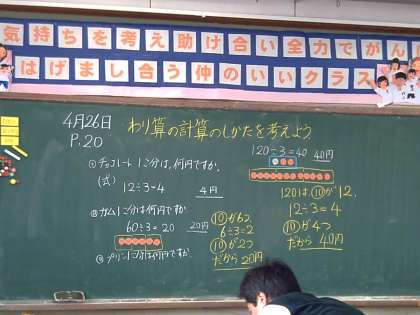 気持ちを考え助け合い全力でがん
はげまし合う仲のいいクラス
4月26日
P.20
わり算の計算のしかたを考えよう
①チョコレート1こ分は、何円ですか。
(式)
12÷3=4 4円
②ガム1こ分は何円ですか
60÷3=20 20円
③プリン1コ分は何円ですか。
⑩が6つ
6÷3=2
⑩が2つ
だから20円
120÷3=40 40円
120は⑩が12.
12÷3=4
⑩が4つ
だから 40円